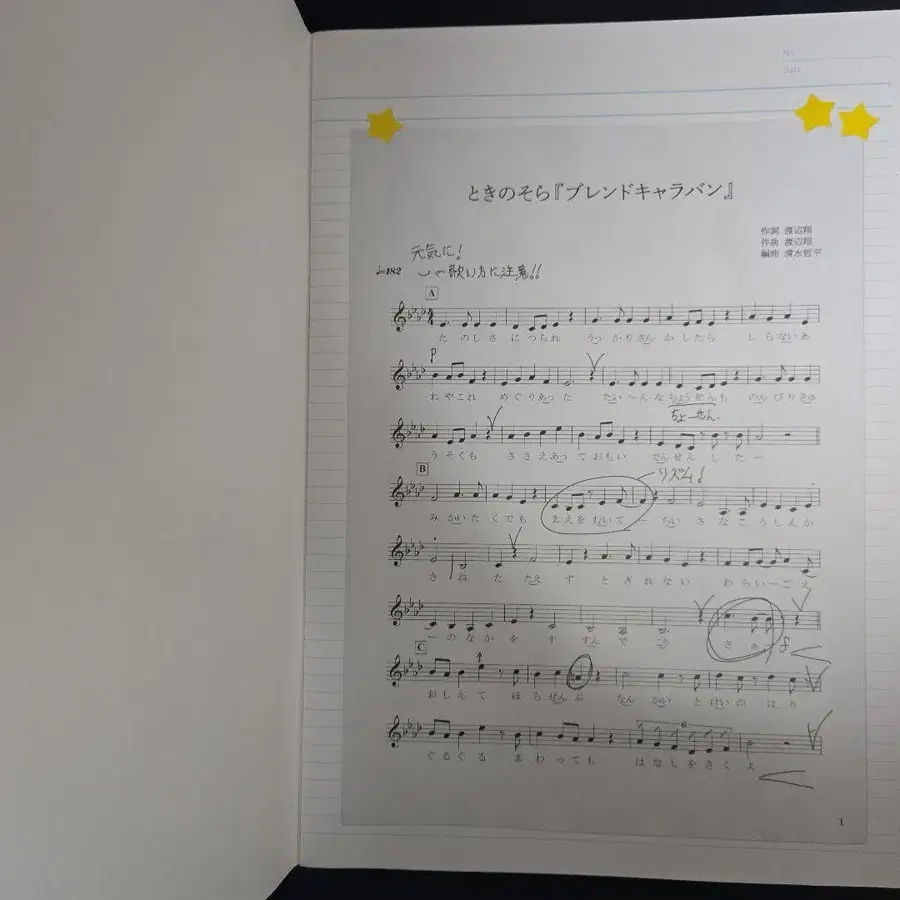 No.
Date
ときのそら『ブレンドキャラバン』
作詞 渡辺翔
作曲 渡辺翔
編曲 清水哲平
元気に!
♩=182
の歌い方に注意!!
A
た の し さ に つ ら れ う っ か り さ ん か し た ら し ら な い あ
p
れ や こ れ め ぐ り あ っ た た い へ ん な ち ょ う せ ん も の ん び り き ゅ
ちょーせん
う そ く も さ さ え あ っ て お も い で ん せ ん し た ー
B
リズム♩
み か い た く で も ま え を む い て ー ち い さ な こ う し ん か
さ ね た た え ず と ぎ れ な い わ ら い ー ご え
ー の な か を す す ん で こ う さ あ
f
C
お し え て ほ ら ぜ ん ぶ な ん か い と け い の は り
6
ぐ る ぐ る ま わ っ て も は な し を き く よ
1